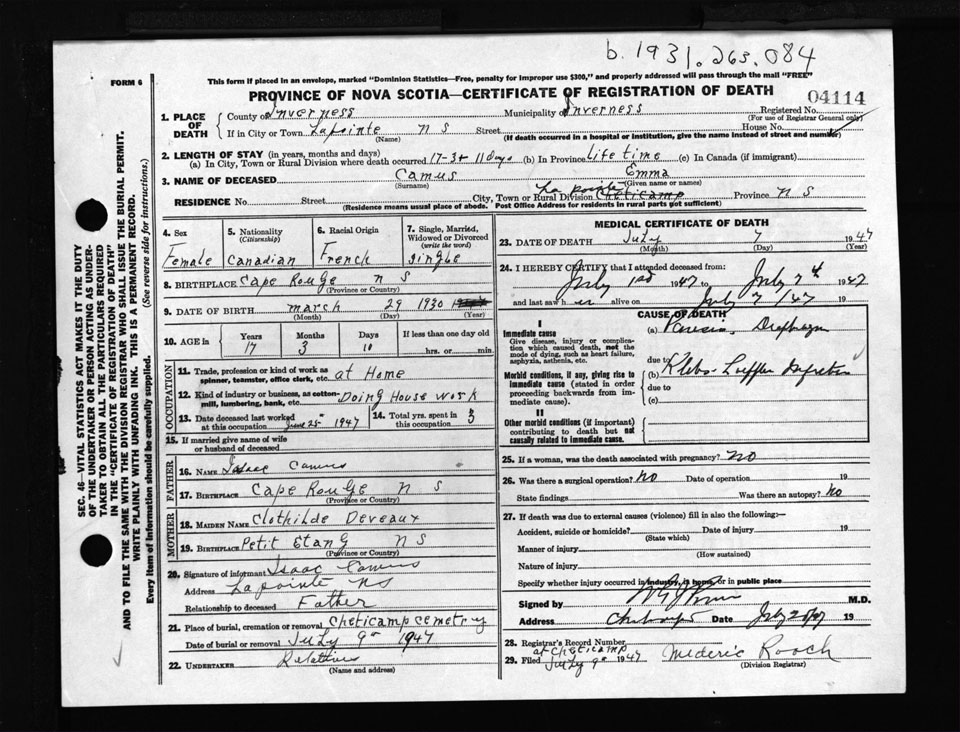 b. 1931. 263. 084
FORM 6
This form if placed in an envelope, marked "Dominion Statistics—Free, penalty for improper use $300," and properly addressed will pass through the mail "FREE"
PROVINCE OF NOVA SCOTIA—CERTIFICATE OF REGISTRATION OF DEATH
04114
1. PLACE OF DEATH
County of Inverness Municipality of Inverness Registered No.
(For use of Registrar General only)
If in City or Town Lapointe N S Street House No.
(Name) (If death occurred in a hospital or institution, give the name instead of street and number)
2. LENGTH OF STAY (in years, months and days)
(a) In City, Town or Rural Division where death occurred 17-3+ 11 days (b) In Province life time (c) In Canada (if immigrant)
3. NAME OF DECEASED Camus Emma
(Surname) (Given name or names)
La pointe
RESIDENCE No. Street City, Town or Rural Division Cheticamp Province N S
(Residence means usual place of abode. Post Office Address for residents in rural parts not sufficient)
4. Sex
Female
5. Nationality
(Citizenship)
Canadian
6. Racial Origin
French
7. Single, Married, Widowed or Divorced
(write the word)
Single
8. BIRTHPLACE Cape Rouge N S
(Province or Country)
9. DATE OF BIRTH march 29 1930
(Month) (Day) (Year)
10. AGE in Years Months Days If less than one day old
17 3 10 hrs. or min.
OCCUPATION
11. Trade, profession or kind of work as spinner, teamster, office clerk, etc. at Home
12. Kind of industry or business, as cotton-mill, lumbering, bank, etc. Doing House work
13. Date deceased last worked at this occupation June 25 1947
14. Total yrs. spent in this occupation 3
15. If married give name of wife or husband of deceased
FATHER
16. NAME Isaac Camus
17. BIRTHPLACE Cape Rouge N S
(Province or Country)
MOTHER
18. MAIDEN NAME Clothilde Deveaux
19. BIRTHPLACE Petit Etang N S
(Province or Country)
20. Signature of informant Isaac Camus
Address Lapointe NS
Relationship to deceased Father
21. Place of burial, cremation or removal Cheticamp cemetery
Date of burial or removal July 9 1947
22. UNDERTAKER Relatives
(Name and address)
MEDICAL CERTIFICATE OF DEATH
23. DATE OF DEATH July 7 1947
(Month) (Day) (Year)
24. I HEREBY CERTIFY that I attended deceased from:
July 1st 1947 to July 7th 1947
and last saw her alive on July 7 /47 19
CAUSE OF DEATH
I
Immediate cause
Give disease, injury or complication which caused death, not the mode of dying, such as heart failure, asphyxia, asthenia, etc.
(a) Paresis Diaphragm
due to
Morbid conditions, if any, giving rise to immediate cause (stated in order proceeding backwards from immediate cause).
(b) Klebs-Loeffler Infection
due to
(c)
II
Other morbid conditions (if important) contributing to death but not causally related to immediate cause.
25. If a woman, was the death associated with pregnancy? NO
26. Was there a surgical operation? NO Date of operation 19
State findings Was there an autopsy? NO
27. If death was due to external causes (violence) fill in also the following:—
Accident, suicide or homicide? Date of injury 19
(State which)
Manner of injury
(How sustained)
Nature of injury
Specify whether injury occurred in industry, in home, or in public place
Signed by M.D.
Address Date July 25/47 19
28. Registrar's Record Number
at Cheticamp
29. Filed July 9 1947 Mederic Roach
(Division Registrar)
SEC. 46—VITAL STATISTICS ACT MAKES IT THE DUTY
OF THE UNDERTAKER OR PERSON ACTING AS UNDER-
TAKER TO OBTAIN ALL THE PARTICULARS REQUIRED
IN THE "CERTIFICATE OF REGISTRATION OF DEATH"
AND TO FILE THE SAME WITH THE DIVISION REGISTRAR WHO SHALL ISSUE THE BURIAL PERMIT.
WRITE PLAINLY WITH UNFADING INK. THIS IS A PERMANENT RECORD.
Every item of Information should be carefully supplied. (See reverse side for instructions.)